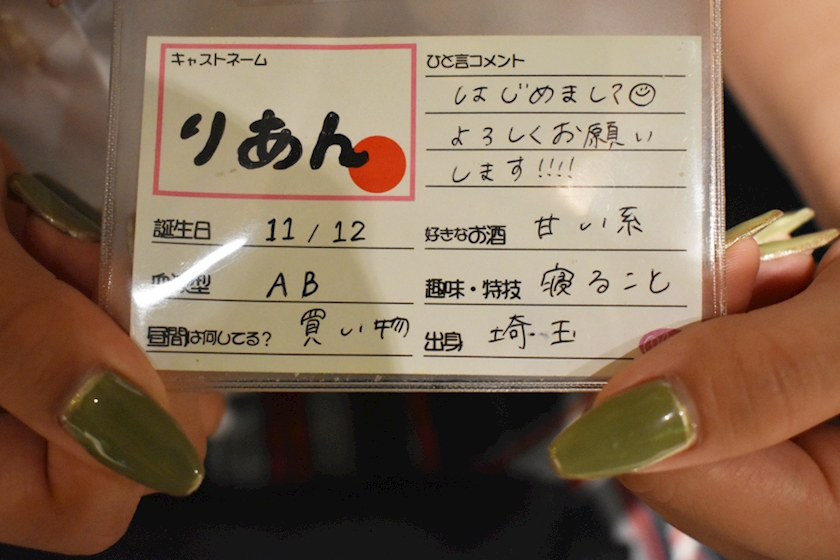 キャストネーム
りあん
ひと言コメント
はじめまして☺
よろしくお願い
します!!!!
誕生日 11/12
好きなお酒 甘い系
血液型 AB
趣味・特技 寝ること
昼間は何してる? 買い物
出身 埼玉